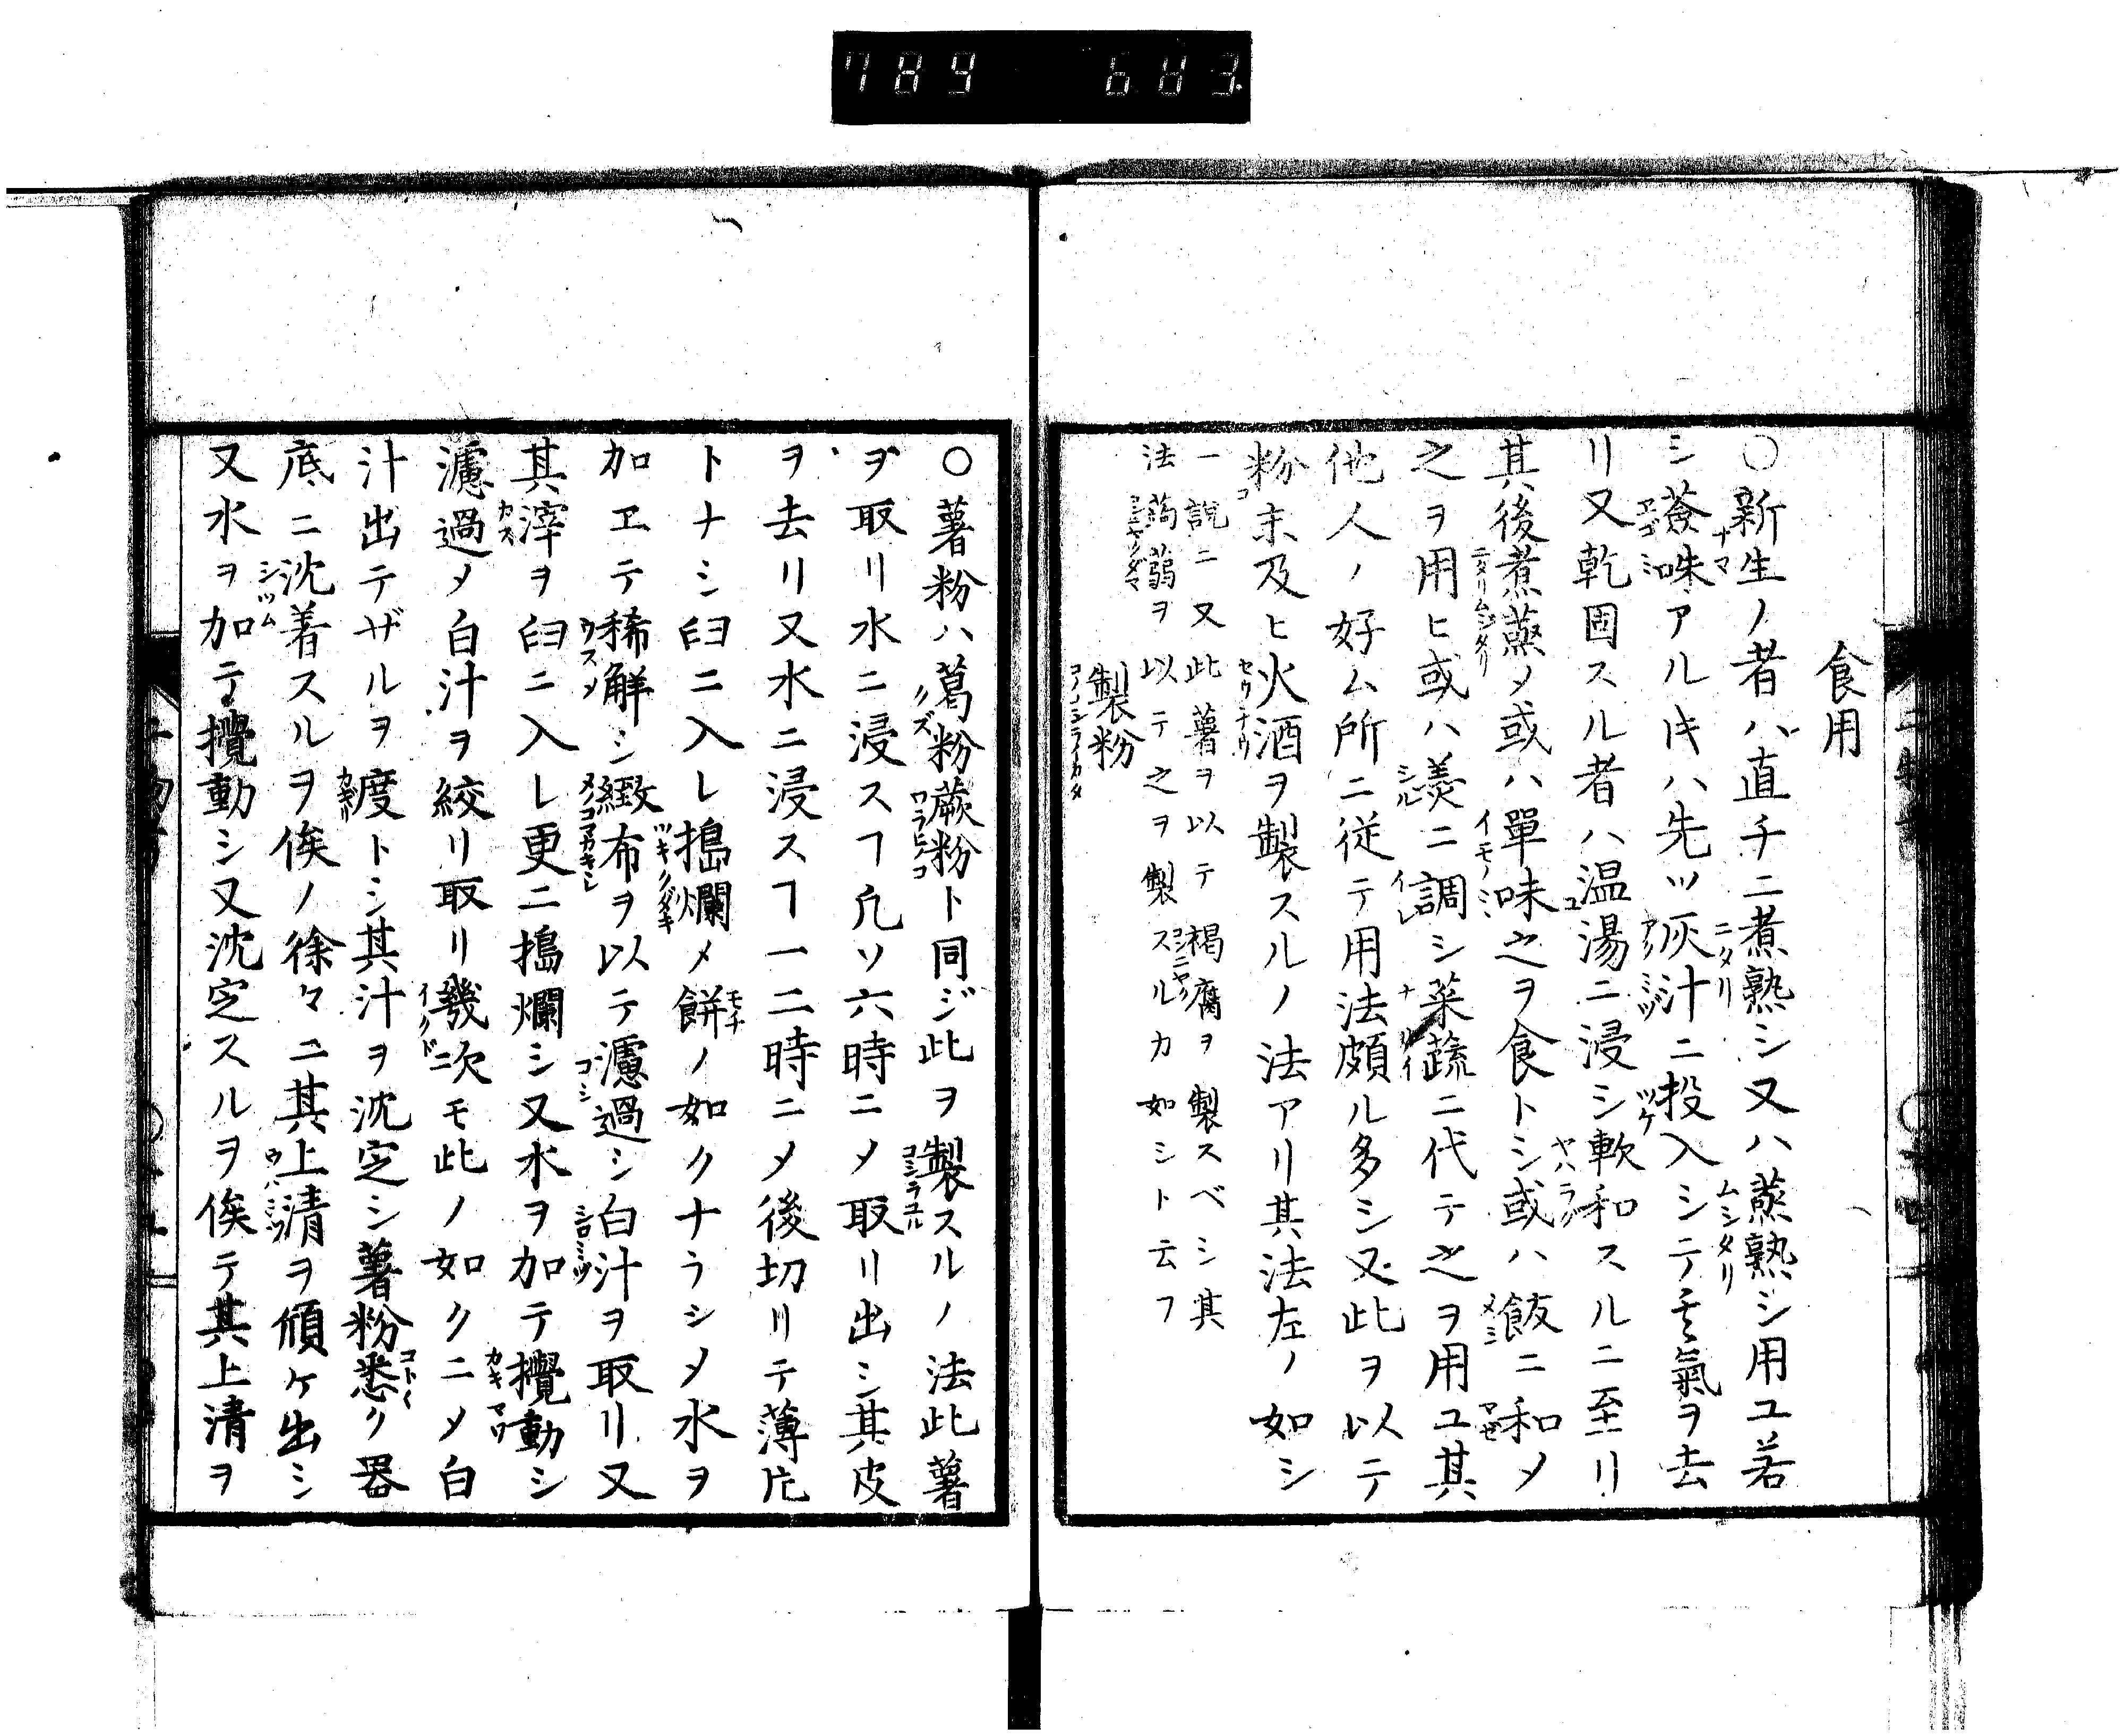 食用
○新生ノ者ハ直チニ煮熟シ又ハ蒸熟シ用ユ若
シ薟味アルキハ先ツ灰汁ニ投入シテ毒氣ヲ去
リ又乾固スル者ハ温湯ニ浸シ軟和スルニ至リ
其後煮蒸メ或ハ單味之ヲ食トシ或ハ飯ニ和メ
之ヲ用ヒ或ハ羹ニ調シ菜蔬ニ代テ之ヲ用ユ其
他人ノ好ム所ニ従テ用法頗ル多シ又此ヲ以テ
粉末及ヒ火酒ヲ製スルノ法アリ其法左ノ如シ
一説ニ又此薯ヲ以テ褐腐ヲ製スベシ其
法蒟蒻ヲ以テ之ヲ製スルカ如シト云フ
製粉
○薯粉ハ葛粉蕨粉ト同ジ此ヲ製スルノ法此薯
ヲ取リ水ニ浸スヿ凡ソ六時ニメ取リ出シ其皮
ヲ去リ又水ニ浸スヿ一二時ニメ後切リテ薄片
トナシ臼ニ入レ搗爛メ餅ノ如クナラシメ水ヲ
加ヱテ稀解シ緻布ヲ以テ濾過シ白汁ヲ取リ又
其滓ヲ臼ニ入レ更ニ搗爛シ又水ヲ加テ攪動シ
濾過メ白汁ヲ絞リ取リ幾次モ此ノ如クニメ白
汁出テザルヲ度トシ其汁ヲ沈定シ薯粉悉ク器
底ニ沈着スルヲ俟ノ徐々ニ其上清ヲ傾ケ出シ
又水ヲ加テ攪動シ又沈定スルヲ俟テ其上清ヲ